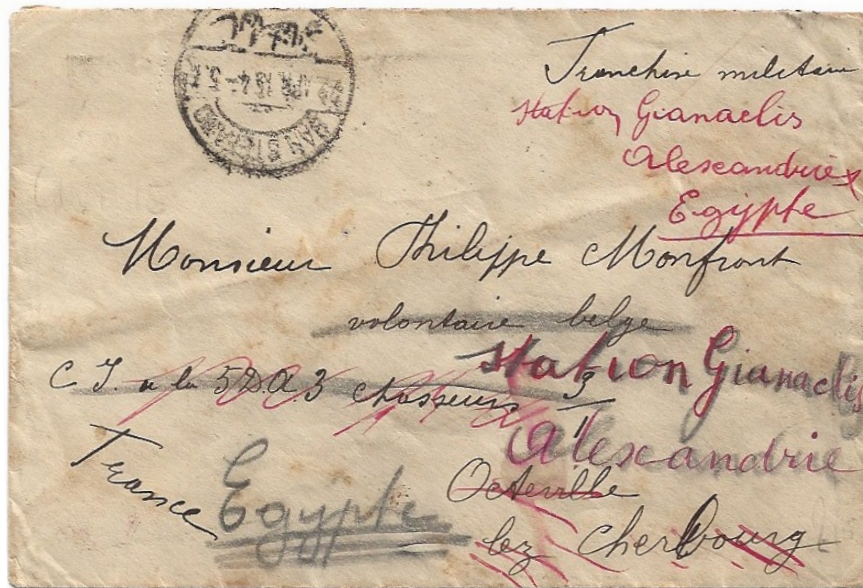 SAN STEFANO
Franchise militaire
Station Gianaclis
Alexandrie
Egypte
Monsieur Philippe Monfront
volontaire belge
Station Gianaclis
C I. a la 5 D.A. 3 chasseurs
Alexandrie
France
Egypte
Octeville
lez Cherbourg